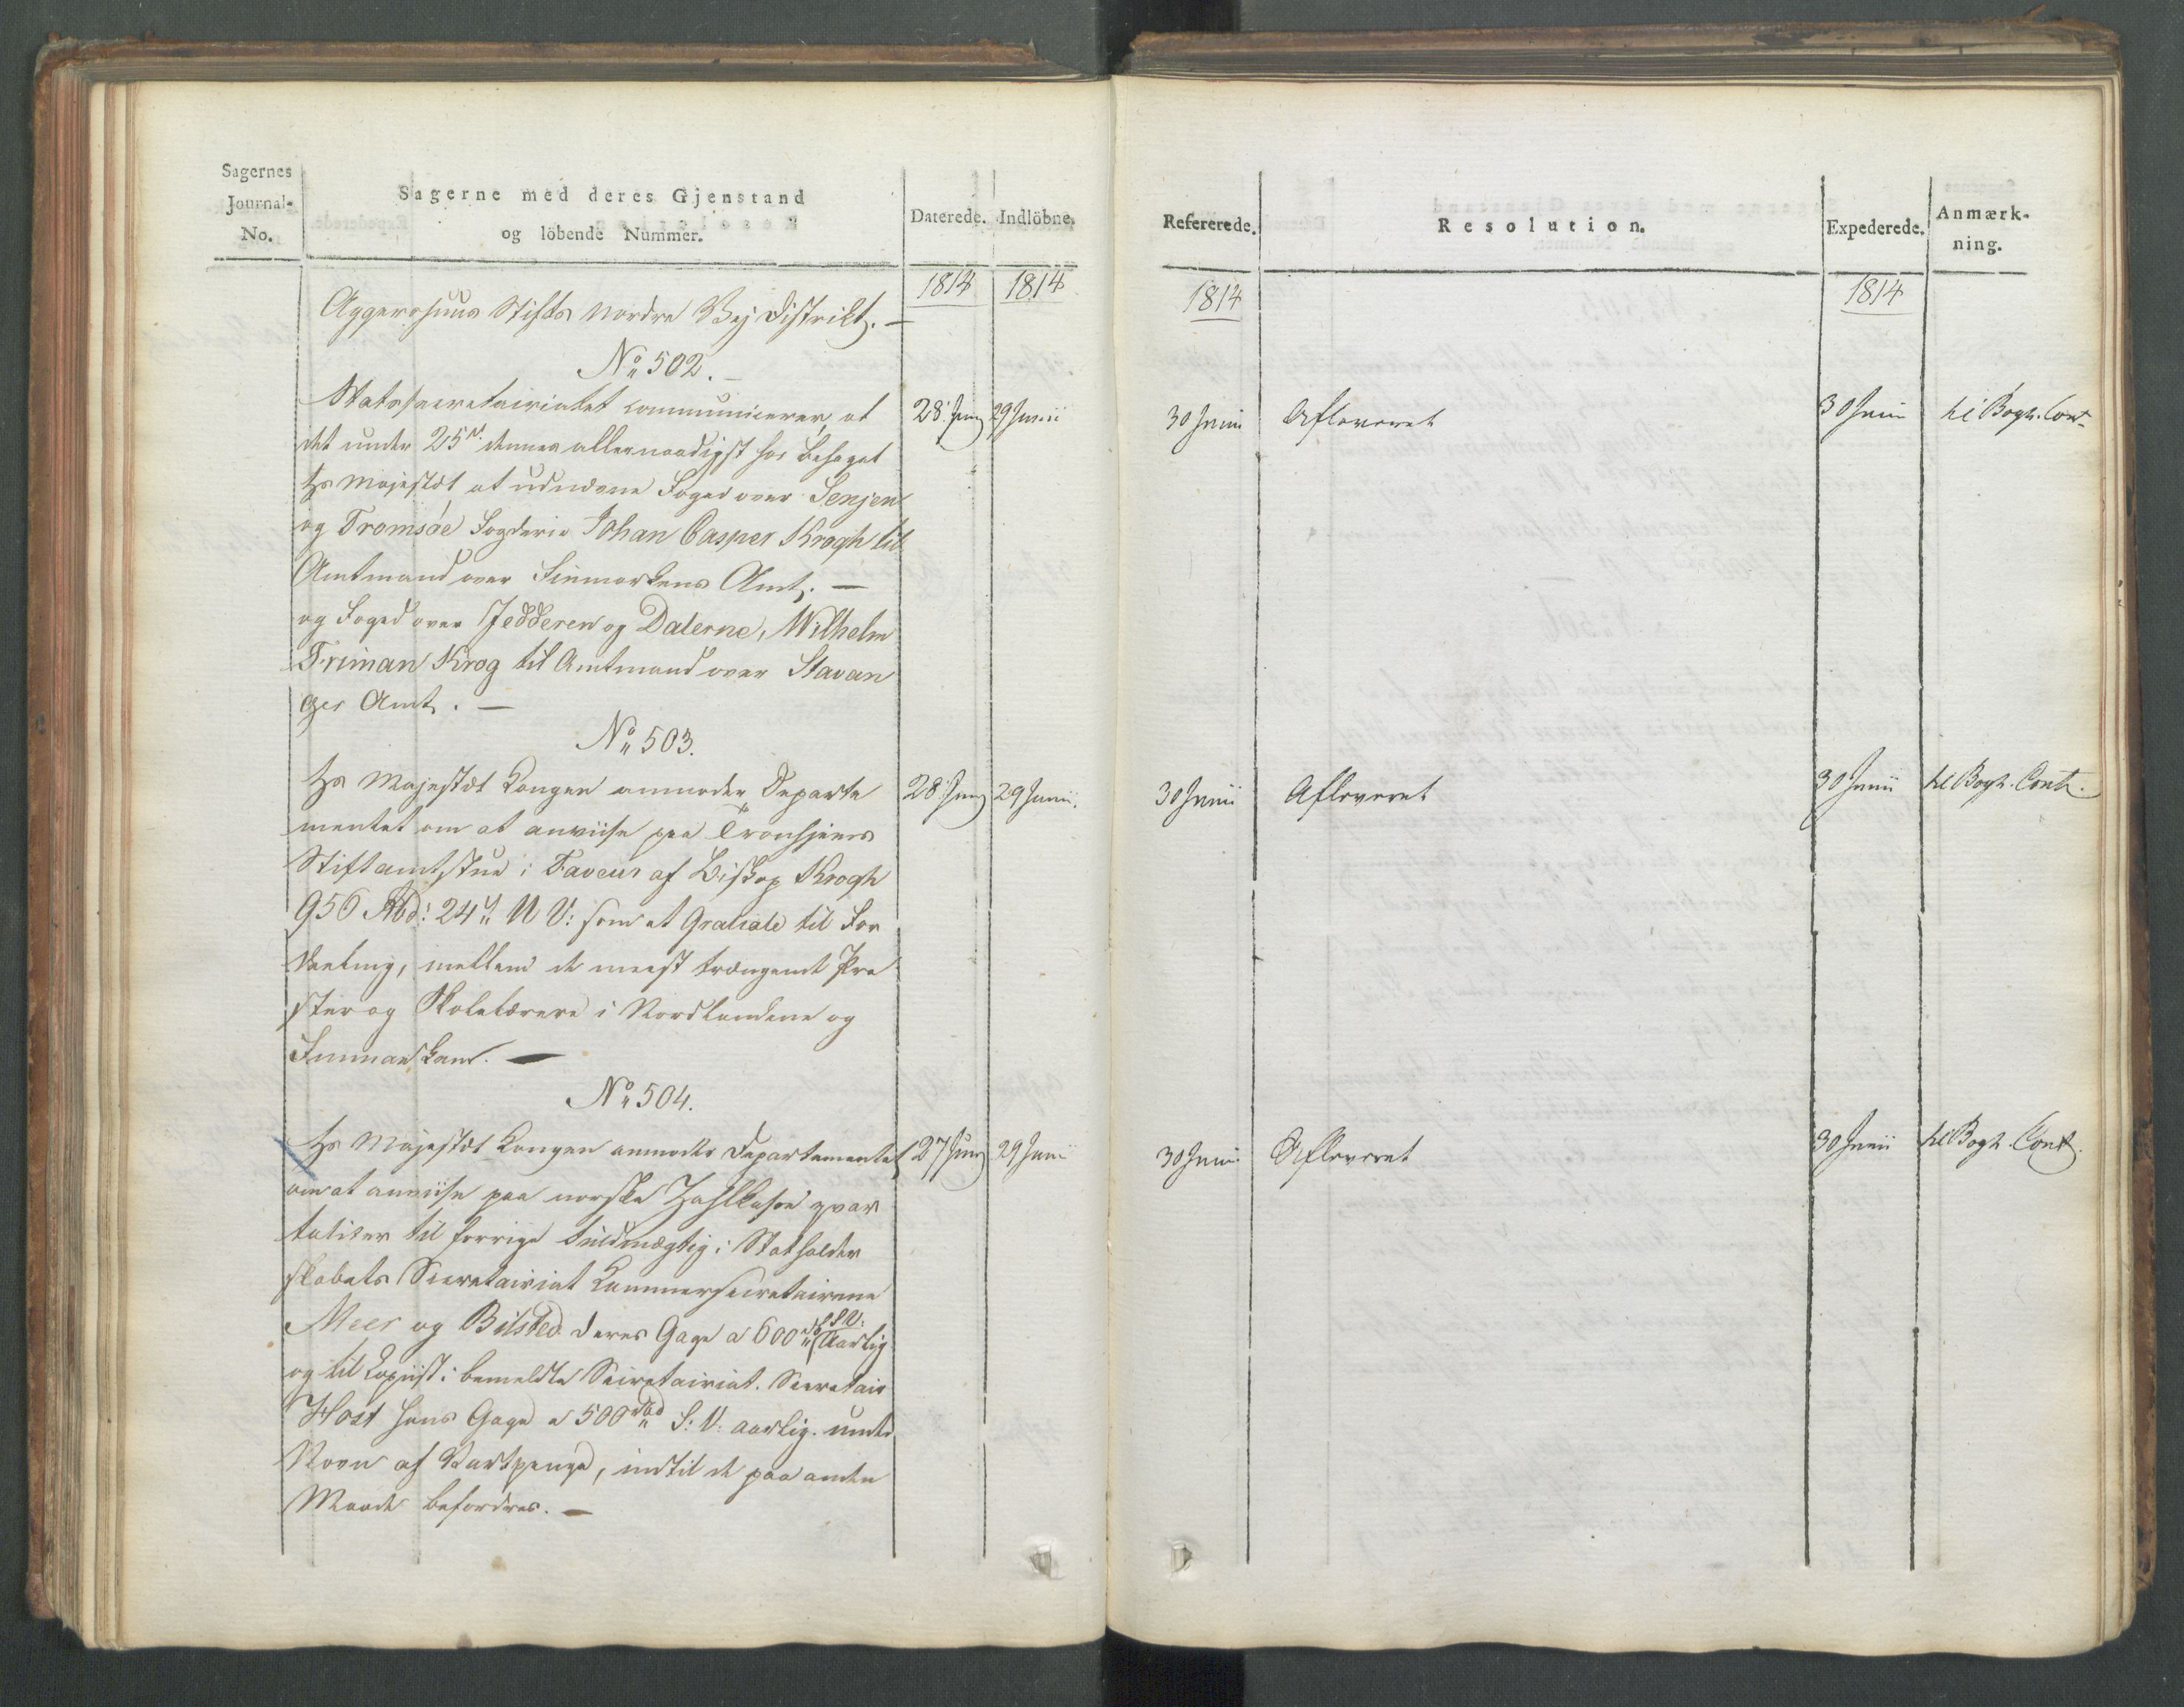 Sagernes
Journal-
No.
Sagerne med deres Gjenstand
og löbende Nummer.
Daterede.
Indlöbne.
1814
1814
Aggershuus Stifts nordre Vej Distrikt. —
No 502. —
Statssecretairiatet communicerer, at
det under 25de dennes allernaadigst har behaget
Hs Majestæt at udnævne Foged over Senjen
og Tromsøe Fogderie Johan Casper Krogh til
Amtmand over Finmarkens Amt. —
og Foged over Jedderen og Dalerne, Wilhelm
Friman Krog til Amtmand over Stavan
ger Amt. —
28 Junij
29 Junii
No 503.
Hs Majestæt Kongen anmoder Departe
mentet om at anviise paa Tronhjems
Stiftamtstue i Faveur af Biskop Krogh
956 Rbd: 24 s N V: som et Gratiale til For
deeling, mellem de meest trængende Præ
ster og Skolelærere i Nordlandene og
Finmarken. —
28 Junij
29 Junii.
No 504.
Hs Majestæt Kongen anmoder Departementet
om at anviise paa norske Zahlkasse qvar
taliter til forrige Fuldmægtig i Statholder
skabets Secretairiat Kammersecretairerne
Meer og Bilsted deres Gage a 600 rd S.V. Aarlig
og til Copiist i bemeldte Secretairiat. Secretair
Høst hans Gage a 500 rbd S: V: aarlig. under
Navn af Vartpenge, indtil de paa anden
Maade befordres. —
27 Junij
29 Junii
Refererede.
Resolution.
Expederede.
Anmærk-
ning.
1814
1814
30 Junii
Afleveret
30 Junii
til Bogh. Cont.
30 Junii
Afleveret
30 Junii
til Bogh. Cont.
30 Junii
Afleveret
30 Junii
til Bogh. Cont.